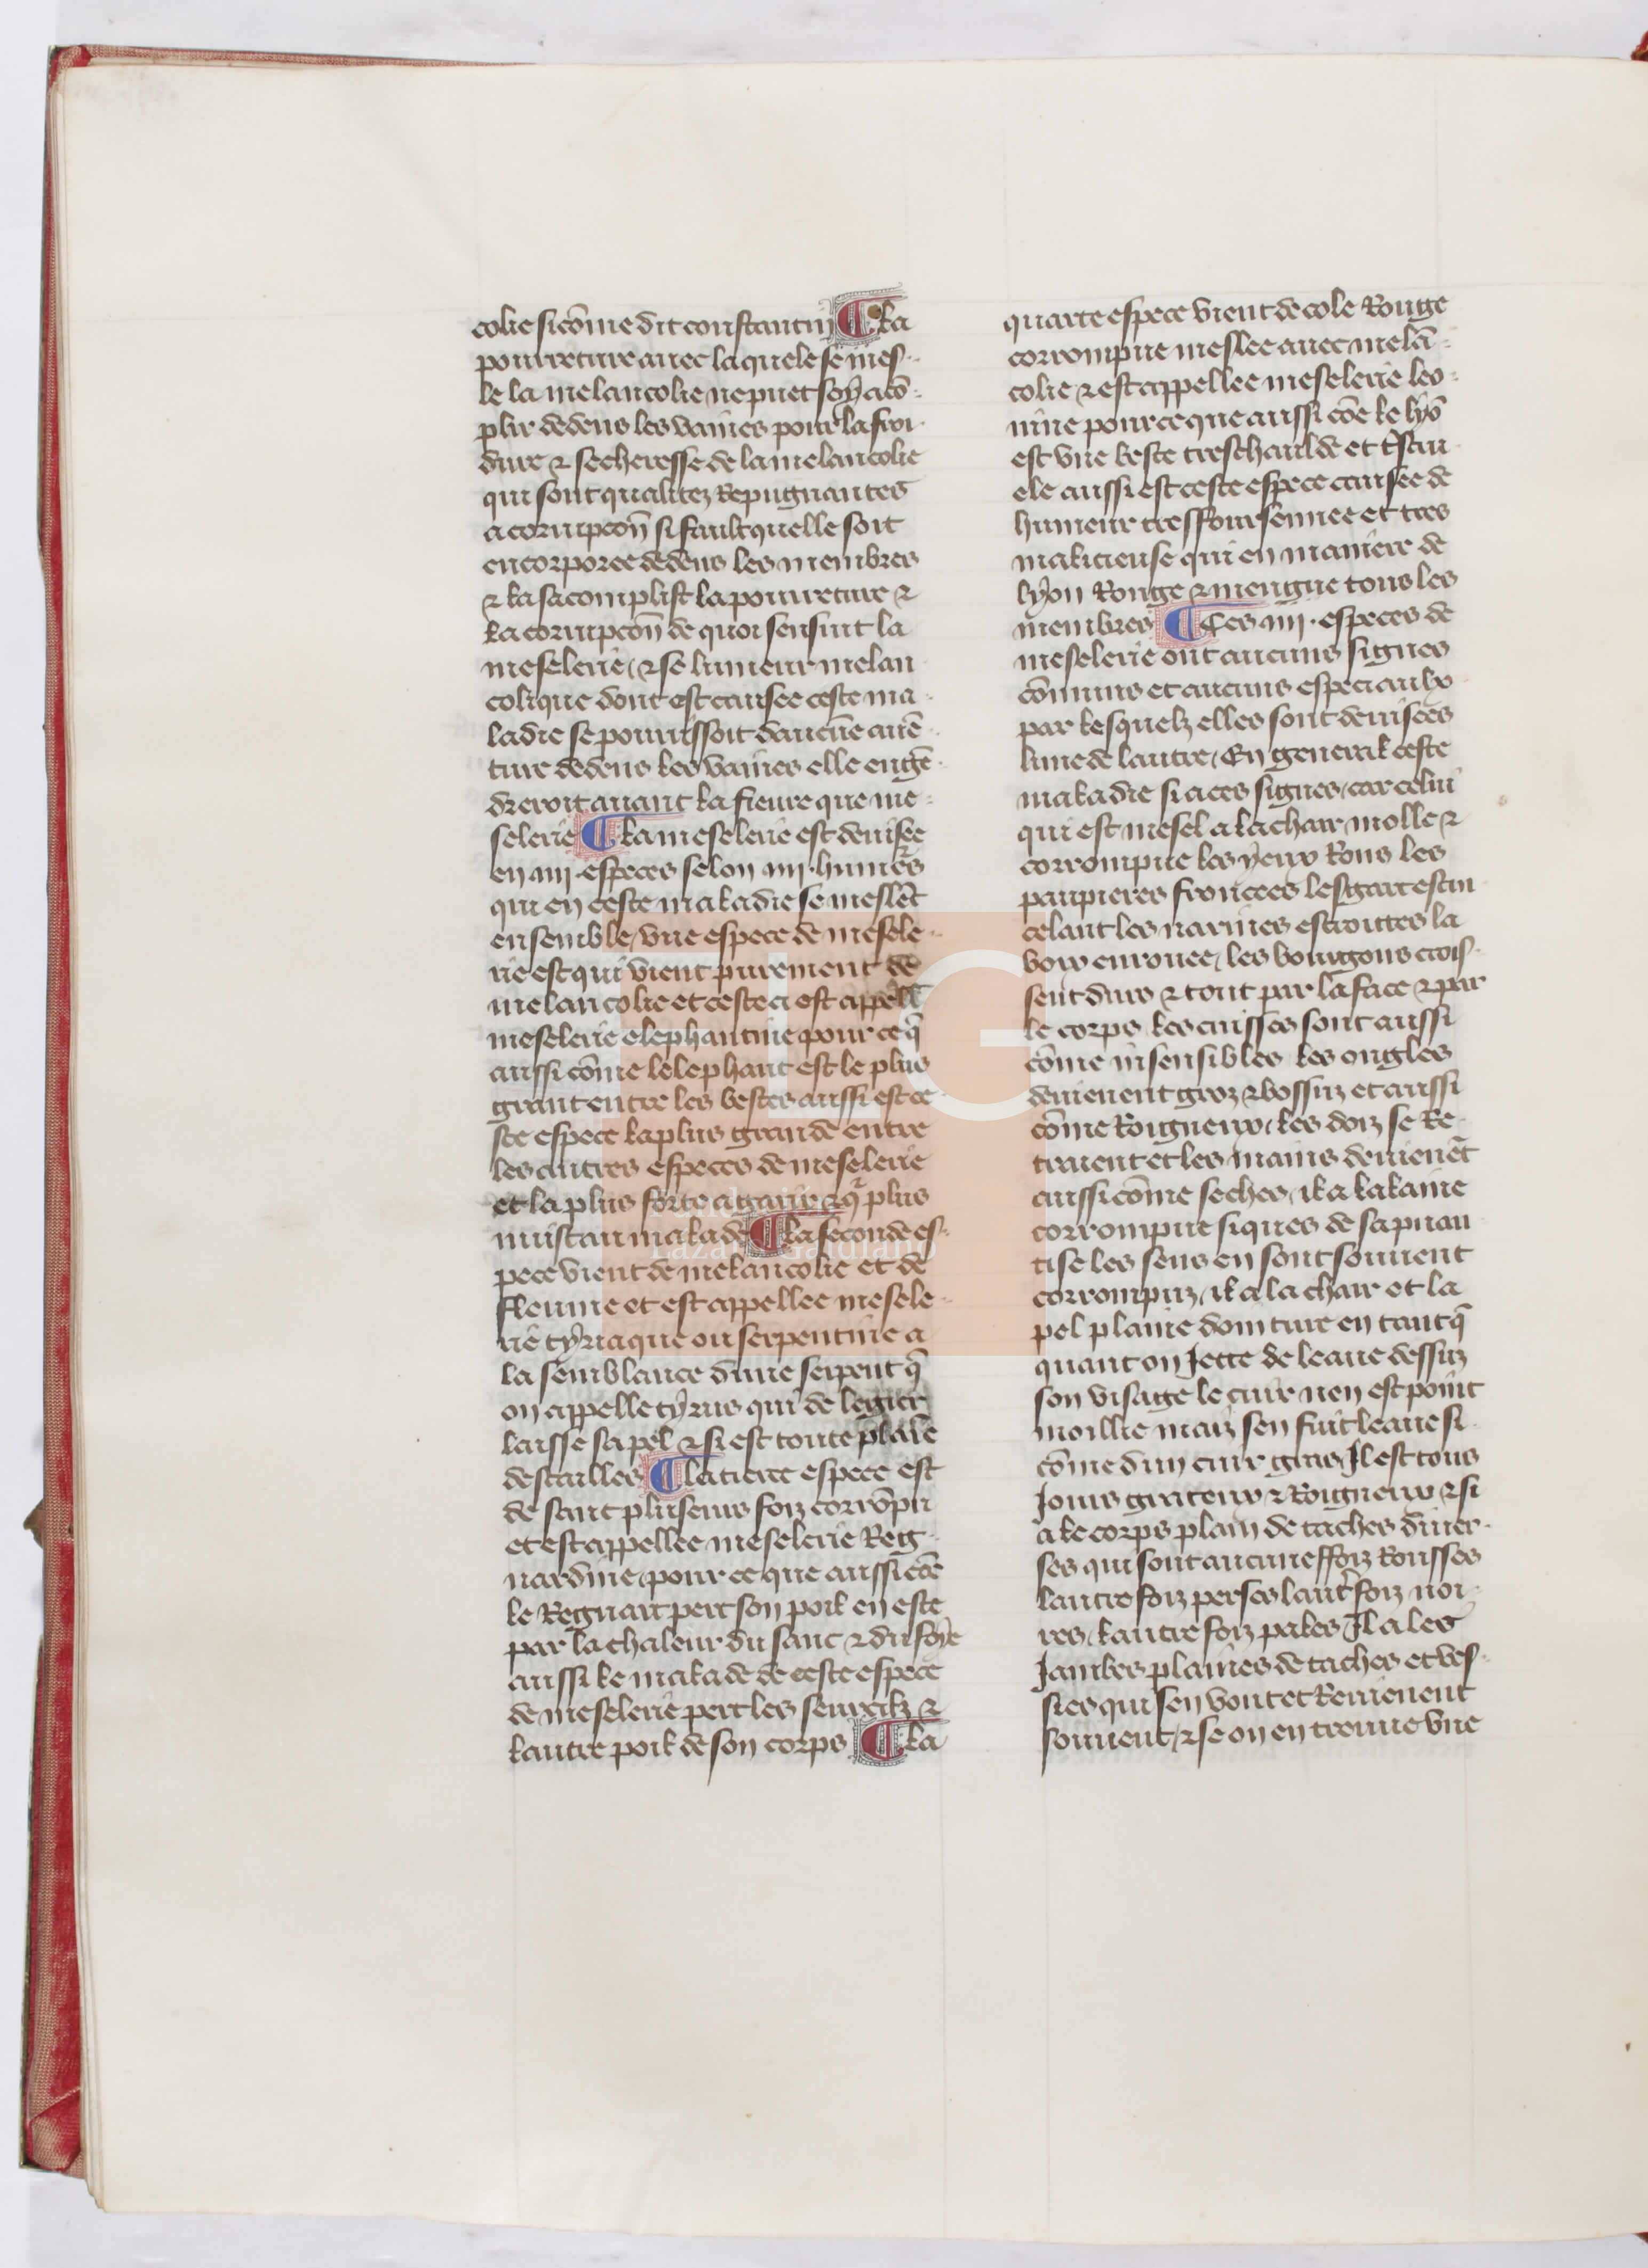 colie sicōme dit constantin ¶ La
pourreture auec laquele se mes-
le la melancolie ne puet soy acō-
plir dedens les vaines pour la froi-
dure ⁊ secheresse de la melancolie
qui sont qualitez Repugnantes
a corrupcōn si fault quelle soit
encorporee dedens les membres
⁊ la sacomplist la pourreture ⁊
la corrupcōn de quoi sensuit la
meselerie / ⁊ se lumeur melan
colique dont est causee ceste ma-
ladie se pourrissoit daucūe auē-
ture dedens les vaines elle engē-
dreroit auant la fieure que me-
selerie ¶ La meselerie est deuisee
en iiii · especes selon iiii · humeᷣs
qui en ceste maladie se meslēt
ensemble / vne espece de mesele-
rie est qui vient purement de
melancolie et ceste ci est appell̄
meselerie elephantine pour ce q̄
aussi cōme lelephant est le plus
grant entre les bestes aussi est ce-
ste espece la plus grande entre
les autres especes de meselerie
et la plus forte a garir ⁊ q̄ plus
nuist au malade ¶ La seconde es-
pece vient de melancolie et de
fleume et est appellee mesele-
rie tyriaque ou serpentine a
la semblance dune serpent q̄
on appelle tyrus qui de legier
laisse sa pel ⁊ si est toute plaīe
descailles ¶ La tierce espece est
de sanc pluseurs foiz corrōpu
et est appellee meselerie Reg-
nardine / pour ce que aussi cōe
le Regnart pert son poil en este
par la chaleur du sanc ⁊ du foye
aussi le malade de ceste espece
de meselerie pert les sourcilz ⁊
lautre poil de son corps ¶ La
quarte espece vient de cole Rouge
corrompue meslee auec melā-
colie ⁊ est appellee meselerie leo-
nine pour ce que aussi cōe le lyō
est vne beste treschaulde et
ele aussi est ceste espece causee de
humeur tresfoursennee et tres
malicieuse qui en maniere de
lyon Ronge ⁊ mengue tous les
membres ¶ Ces iiii · especes de
meselerie ont aucuns signes
cōmuns et aucuns especiaulx
par lesquelz elles sont deuisees
lune de lautre / En general ceste
maladie si a ces signes / car celui
qui est mesel a la char molle ⁊
corrompue les yeux Rons les
paupieres froncees lesgart estin
celant les narines estroittes la
voix enrouee / les bourgons crois-
sent durs ⁊ tout par la face ⁊ par
le corps les cuisses sont aussi
cōme insensibles les ongles
deuienent groz ⁊ bossuz et aussi
cōme Roigneux / les doiz se Re-
traient et les mains deuienēt
aussi cōme seches / il a lalaine
corrompue si ques de sa puan
tise les sens en sont souuent
corrompuz / il a la char et la
pel plaine dointure en tant q̄
quant on Jette de leaue dessuz
son visage le cuir nen est point
moillie maiz sen fuit leaue si-
cōme dun cuir gras Il est tous
Jours grateux ⁊ Roigneux ⁊ si
a le corps plain de taches diuer-
ses qui sont aucuneffoiz Rousses
lautre foiz perses laut̄ foiz noi-
res / lautre foiz pales Il a les
Jambes plaines de taches et ves-
sies qui sen vont et Reuienent
souuent / ⁊ se on en treuue vne